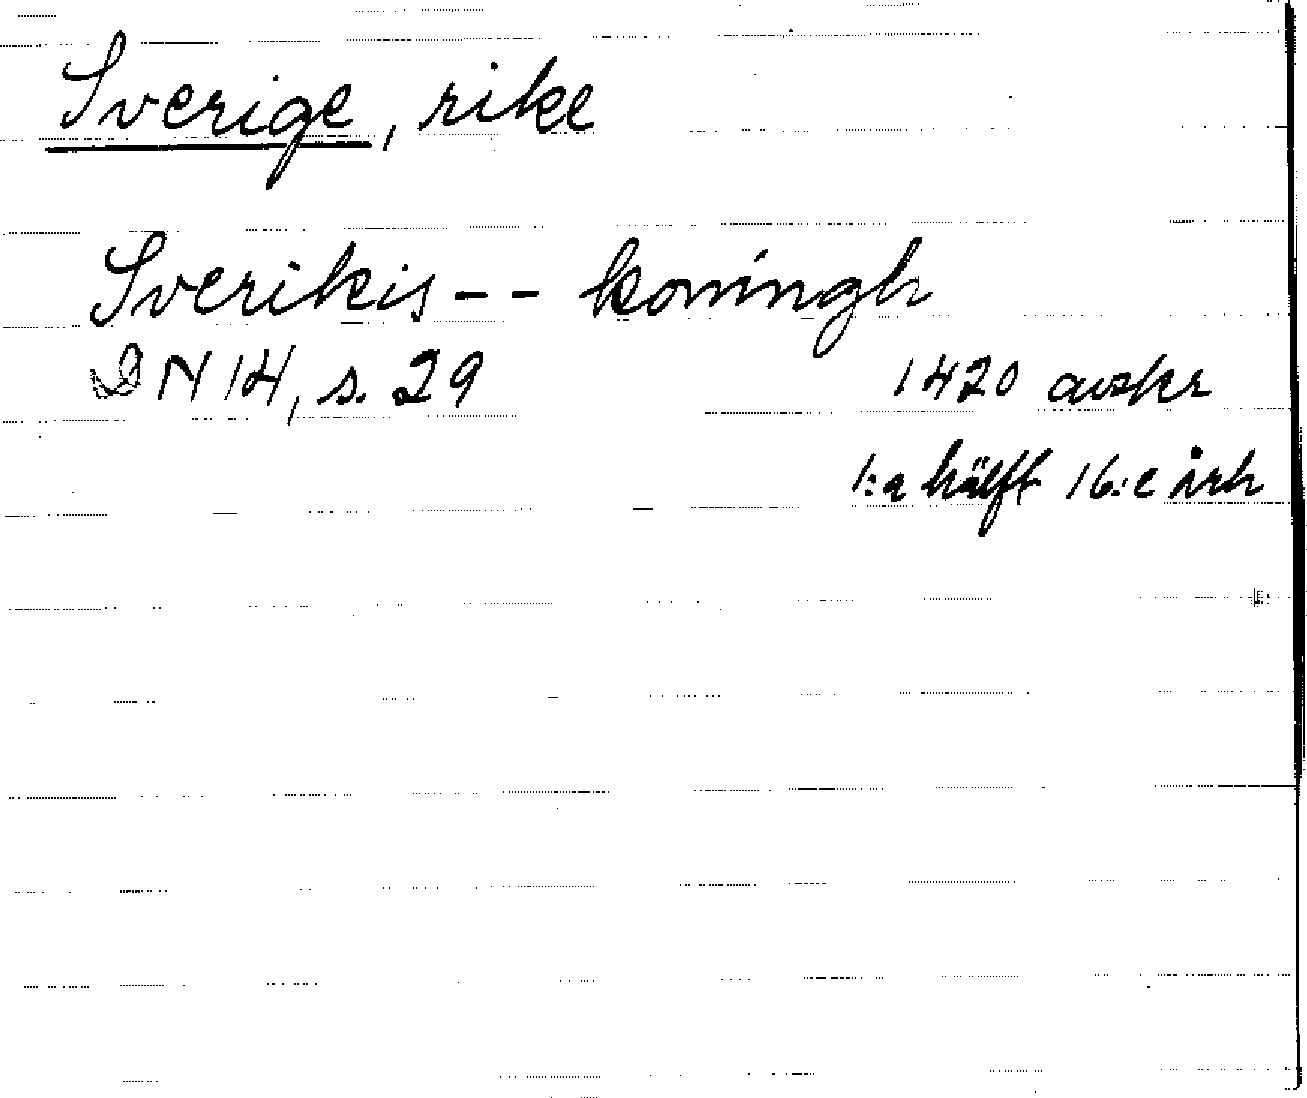 Sverige, rike
Sverikis -- koningh
DN 14, s. 29 1420 avskr
1:a hälft 16:e årh